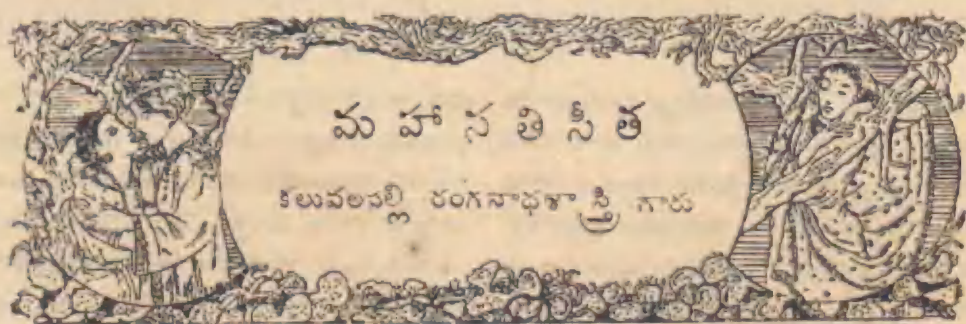 మహాసతిసీత
కిలువలపల్లి రంగనాధశాస్త్రి గారు